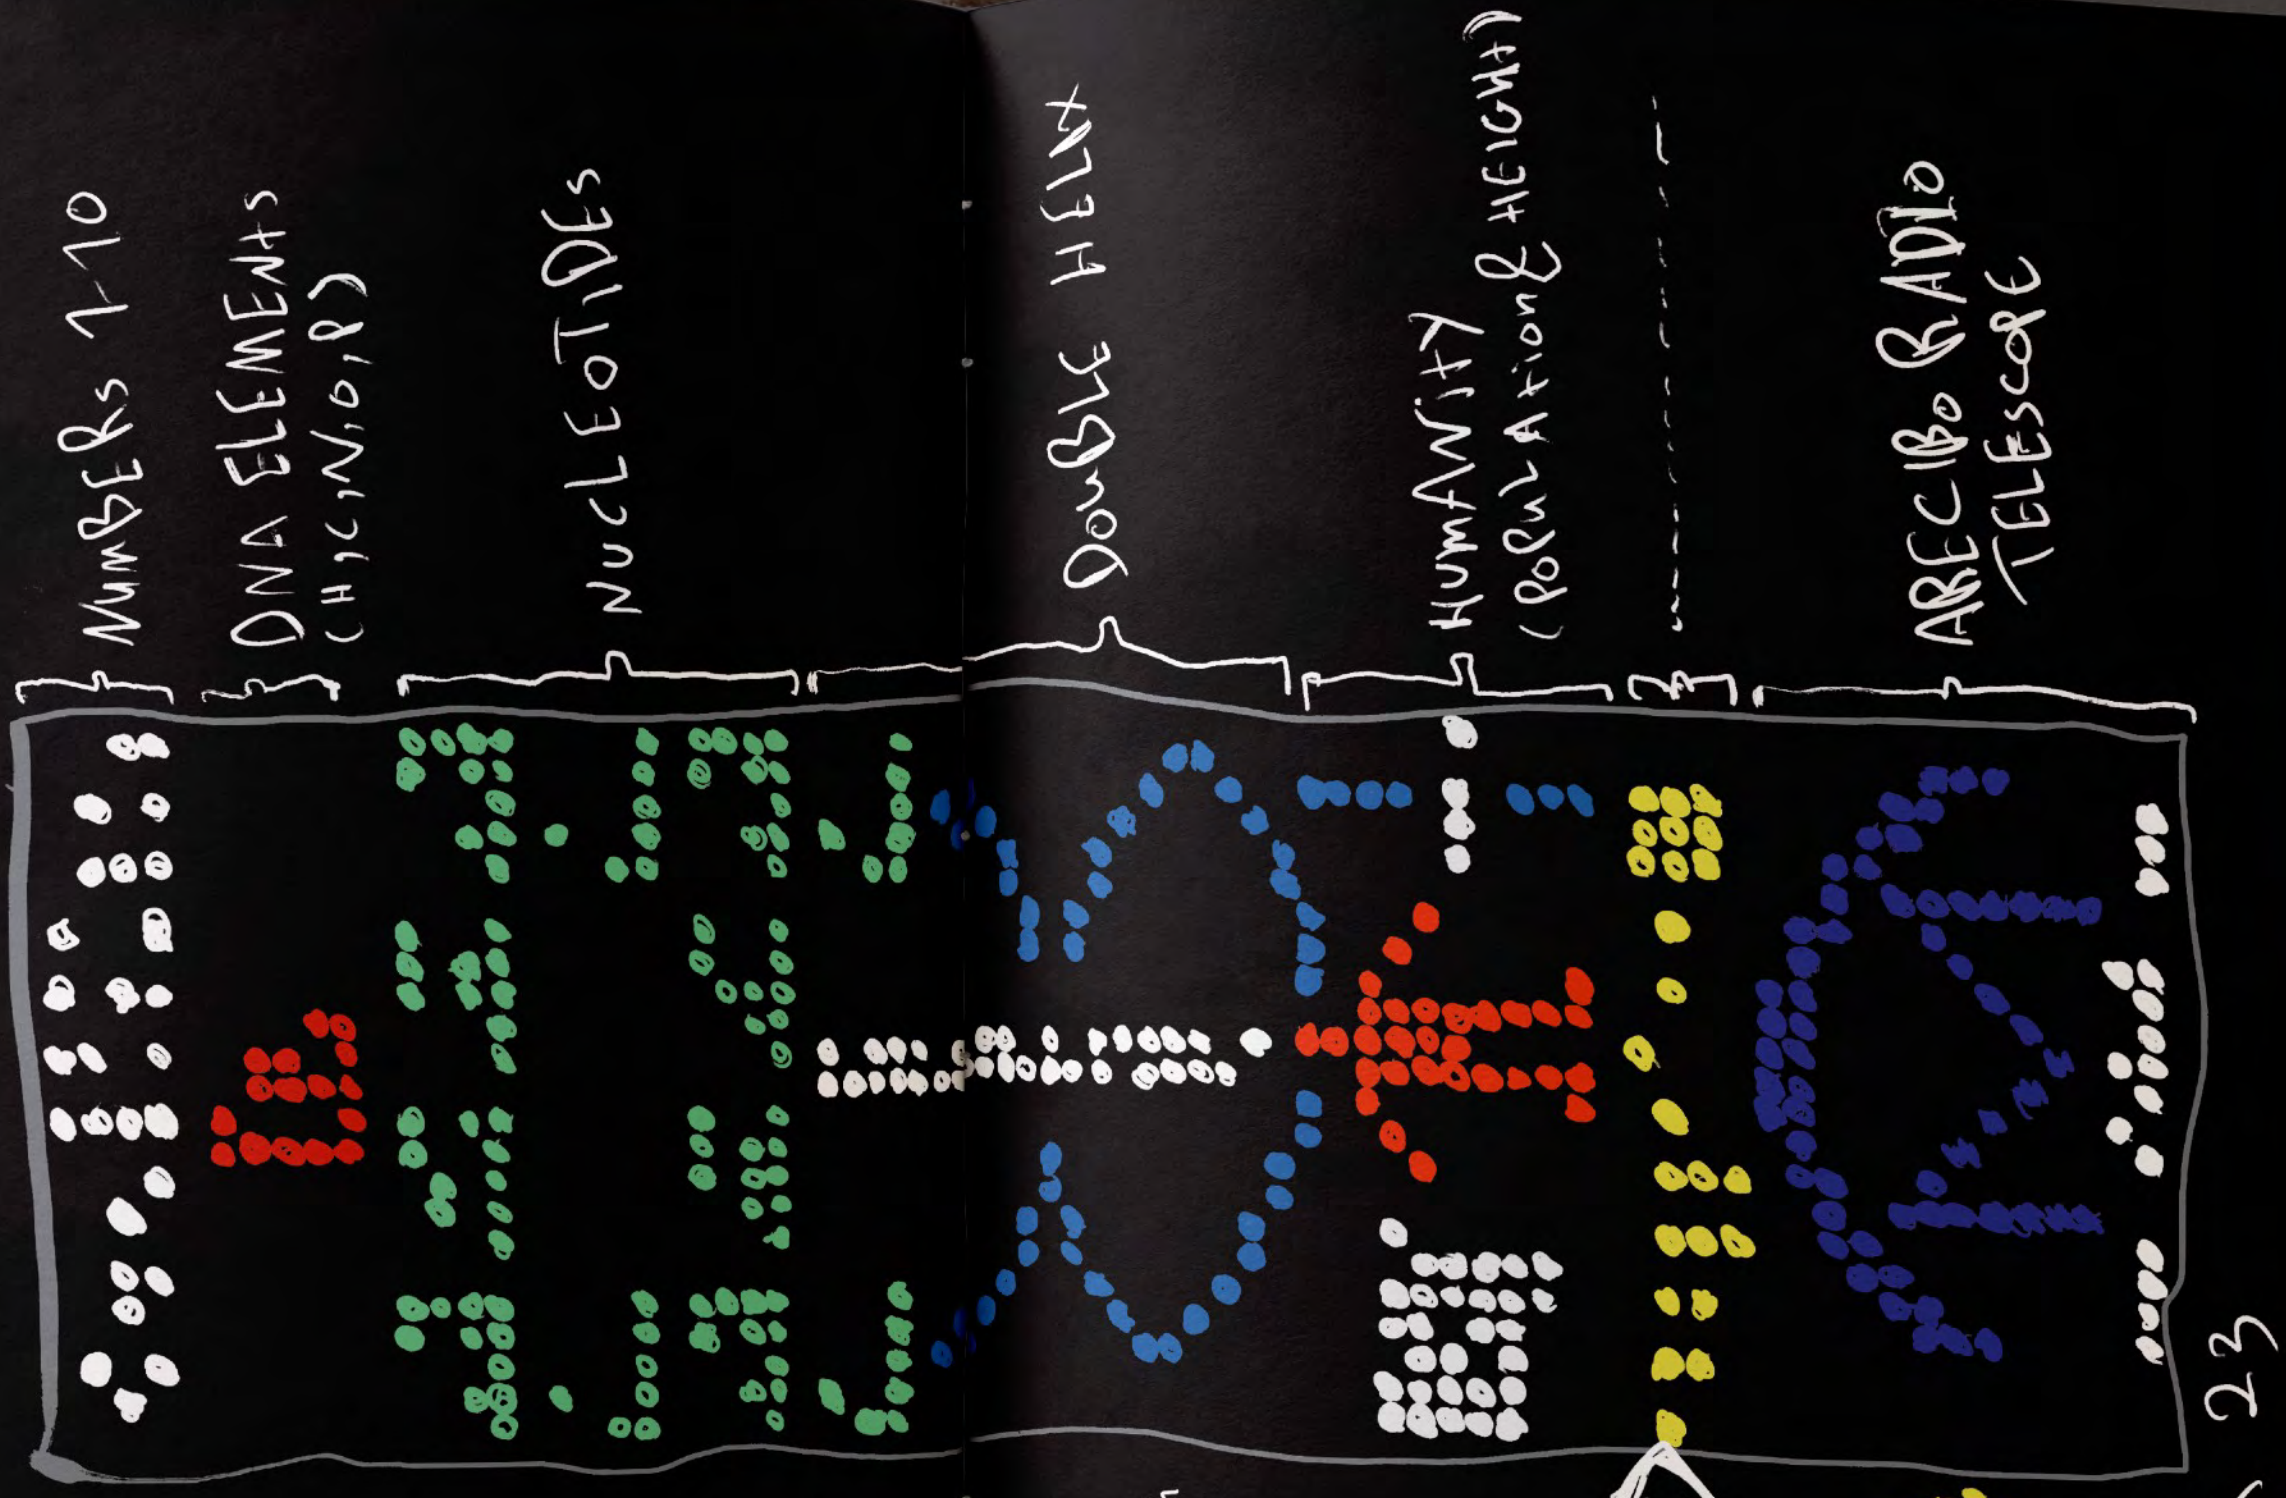 NumBERs 1-10
DNA ELEMENtS
(H,C,N,O,P)
NUCLEOTIDEs
DouBLE HELIX
HumANity
(PoPulAtion & HEIGHt)
ARECIBo RADIo
TELEscoPE
23